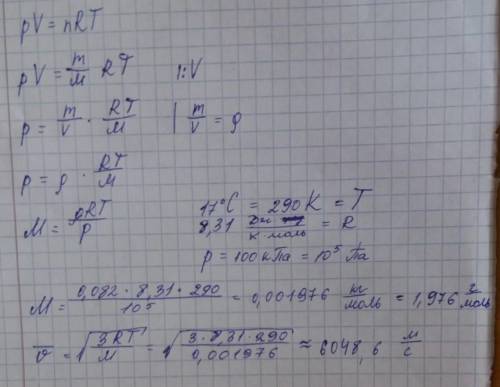 pV = nRT
pV = m/M RT   |:V
p = m/V · RT/M   | m/V = ρ
p = ρ · RT/M
M = ρRT/p
17°C = 290K = T
8,31 Дж/К·моль = R
p = 100 кПа = 10⁵ Па
M = 0,082 · 8,31 · 290 / 10⁵ = 0,001976 кг/моль = 1,976 г/моль
v̅ = √(3RT/M) = √(3·8,31·290/0,001976) ≈ 6048,6 м/с